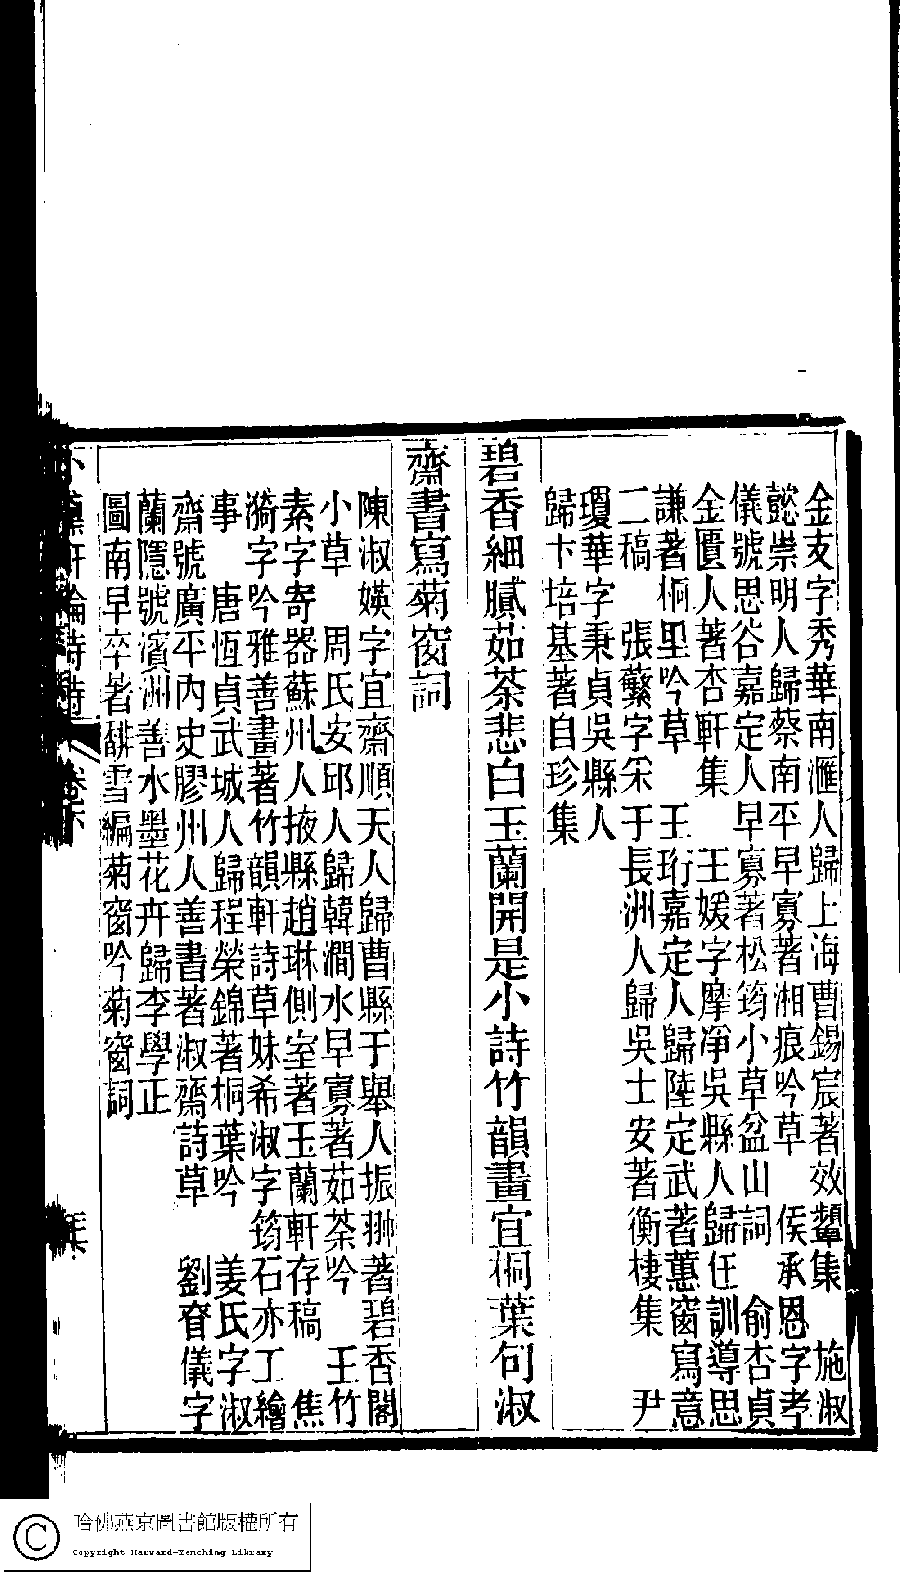 金支字秀華南滙人歸上海曹錫宸著效顰集　施淑
懿崇明人歸蔡南平早寡著湘痕吟草　侯承恩字孝
儀號思谷嘉定人早寡著松筠小草盆山詞　俞杏貞
金匱人著杏軒集　王媛字摩凈吳縣人歸任訓導思
謙著桐里吟草　王珩嘉定人歸陸定武著蕙窗寫意
二稿　張蘩字采于長洲人歸吳士安著衡棲集　尹
瓊華字秉貞吳縣人
歸卞培基著自珍集
碧香細膩茹荼悲白玉蘭開是小詩竹韻畫宜桐葉句淑
齋書寫菊窗詞
陳淑媖字宜齋順天人歸曹縣于舉人振翀著碧香閣
小草　周氏安邱人歸韓澗水早寡著茹荼吟　王竹
素字寄器蘇州人掖縣趙琳側室著玉蘭軒存稿　焦
漪字吟雅善畫著竹韻軒詩草妹希淑字筠石亦工繪
事　唐恆貞武城人歸程榮錦著桐葉吟　姜氏字淑
齋號廣平內史膠州人善書著淑齋詩草　劉眘儀字
蘭隱號濱洲善水墨花卉歸李學正
圖南早卒著馡雪編菊窗吟菊窗詞
軒論詩詩　卷六
哈佛燕京圖書館版權所有
Copyright Harvard-Yenching Library